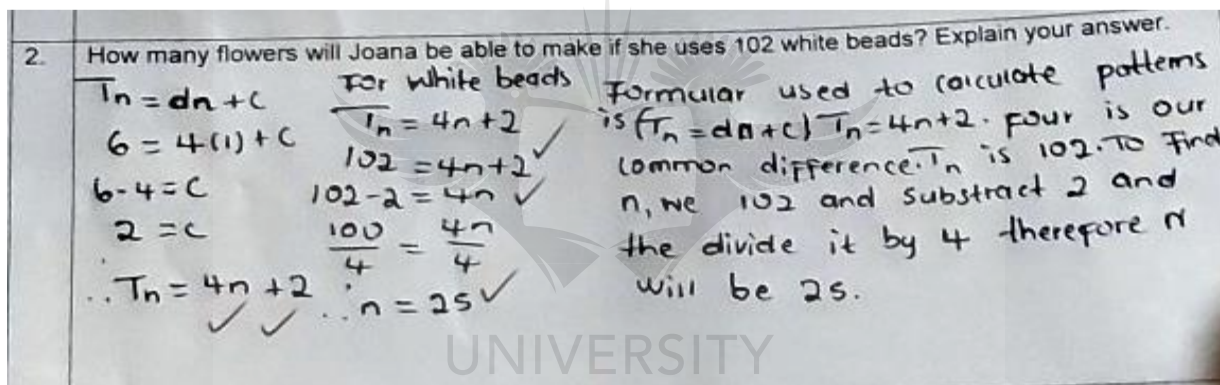 2. How many flowers will Joana be able to make if she uses 102 white beads? Explain your answer.
Tn = dn + c
6 = 4(1) + c
6 - 4 = c
2 = c
∴ Tn = 4n + 2
For white beads
Tn = 4n + 2
102 = 4n + 2
102 - 2 = 4n
100/4 = 4n/4
∴ n = 25
Formular used to calculate patterns
is (Tn = dn + c) Tn = 4n + 2. Four is our
common difference. Tn is 102. To Find
n, we 102 and Substract 2 and
the divide it by 4 therefore n
will be 25.
UNIVERSITY